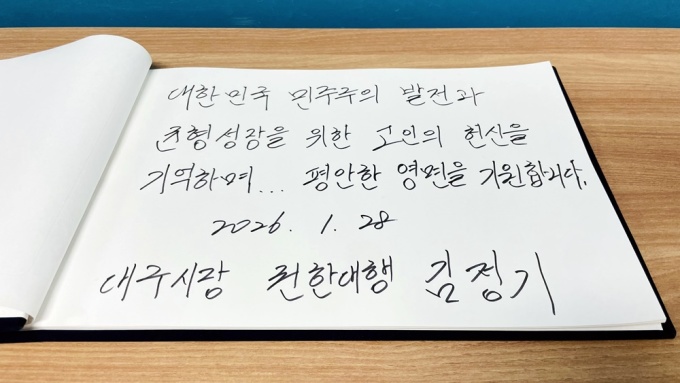 대한민국 민주주의 발전과
균형성장을 위한 고인의 헌신을
기억하며... 평안한 영면을 기원합니다.
2026. 1. 28
대구시장 권한대행 김정기